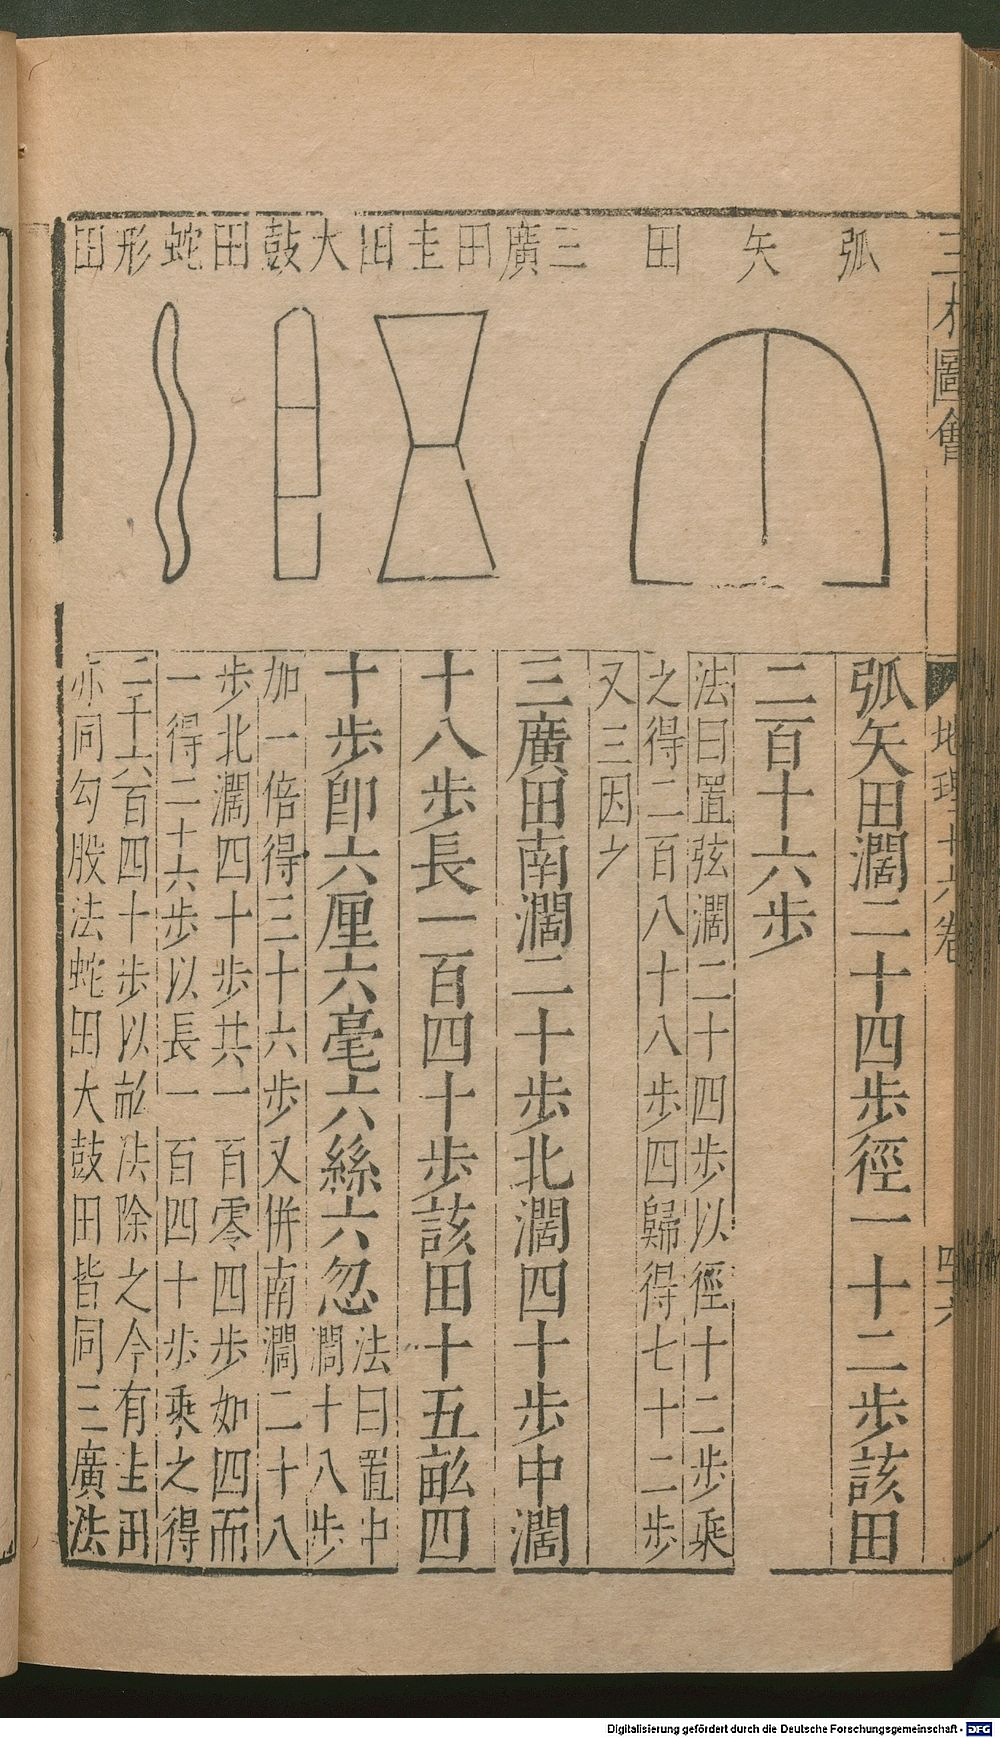 三才圖會
地理十六卷
四六
弧矢田
三廣田
圭田
大鼓田
蛇形田
弧矢田濶二十四步徑一十二步該田
二百十六步
法曰置弦濶二十四步以徑十二步乘
之得二百八十八步四歸得七十二步
又三因之
三廣田南濶二十步北濶四十步中濶
十八步長一百四十步該田十五畝四
十步卽六厘六毫六絲六忽
法曰置中
濶十八步
加一倍得三十六步又併南濶二十八
步北濶四十步共一百零四步如四而
一得二十六步以長一百四十步乘之得
三千六百四十步以畝法除之今有圭田
亦同勾股法蛇田大鼓田皆同三廣法
Digitalisierung gefördert durch die Deutsche Forschungsgemeinschaft - DFG